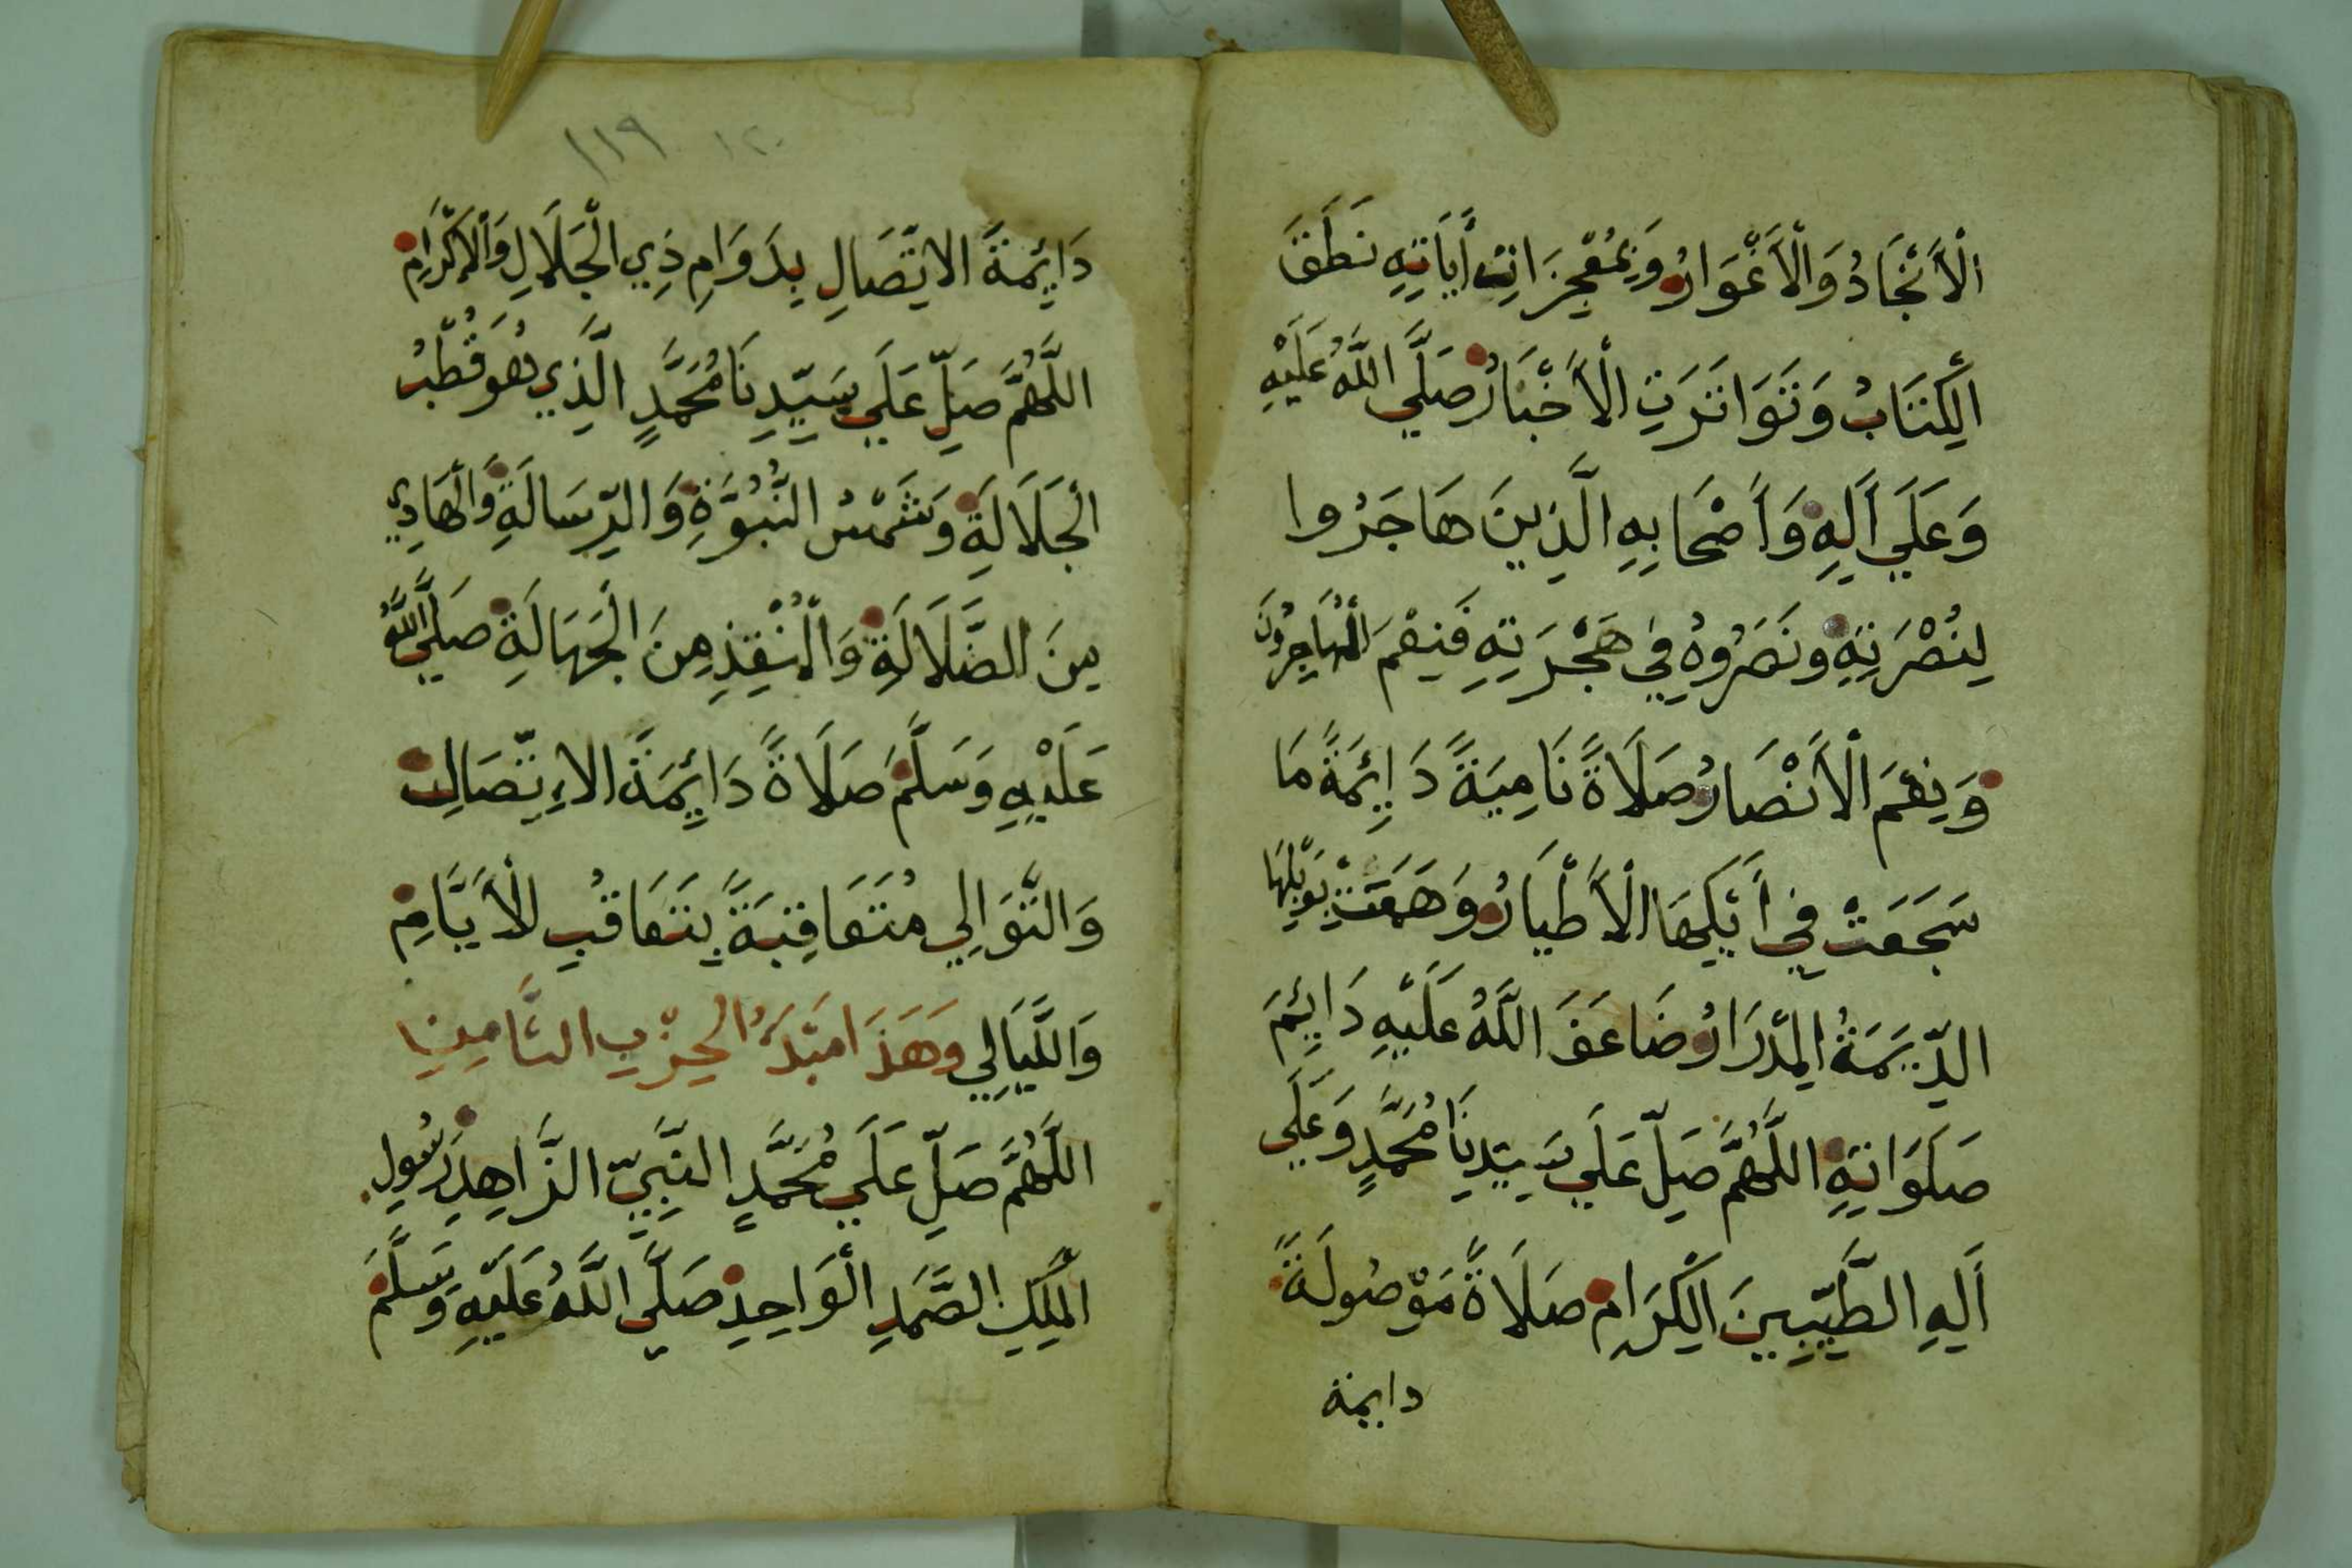 اْلأَنْجَادُ وَالْأَغْوَارُ وَبِمُعْجِزَاتِ أَيَاتِهِ نَطَقَ
الْكِتَابُ وَتَوَاتَرَتِ الْأَخْبَارُ صَلَّي اللَّهُ عَلَيْهِ
وَعَلَي أَلِهِ وَأَصْحَابِهِ الَّذِينَ هَاجَرُوا
لِنُصْرَتِهِ وَنَصَرُوهُ فِي هَجْرَتِهِ فَنِعْمَ الْمُهَاجِرُونَ
وَنِعْمَ الْأَنْصَارُ صَلَاةً نَامِيَةً دَايِٕمَةً مَا
سَجَعَتْ فِي أَيْكِهَا الْأَطْيَارُ وَهَمَعَتْ بِوَبْلِهَا
الدِّيَمَةُ الْمِدْرَارُ ضَاعَفَ اللَّهُ عَلَيْهِ دَايِٕمَ
صَلَوَاتِهِ اللَّهُمَّ صَلِّ عَلَي سَيِّدِنَا مُحَمَّدٍ وَعَلَي
أَلِهِ الطَّيِّبِينَ الْكِرَامِ صَلَاةً مَوْصُولَةً
دايمة
١١٩ ١٢٠
دَايِٕمَةَ الاتِّصَالِ بِدَوَامِ ذِي الْجَلَالِ وَالْاكْرَامِ
اللَّهُمَّ صَلِّ عَلَي سَيِّدِنَا مُحَمَّدٍ الَّذِي هُوَ قُطْبُ
الْجَلَالَةِ وَشَمْسُ النُّبُوَّةِ وَالرِّسَالَةِ وَالْهَادِي
مِنَ الضَّلَالَةِ وَالْمُنْقِذِ مِنَ الْجَهَالَةِ صَلَّي اللَّهُ
عَلَيْهِ وَسَلَّمَ صَلَاةً دَايِٕمَةَ الاِتِّصَالِ
وَالتَّوَالِي مُتَعَاقِبَةً بِتَعَاقُبِ الْأَيَّامِ
وَاللَّيَالِي وَهَذَا مَبْدَءُ الْحِزْبِ الثَّامِنِ
اللَّهُمَّ صَلِّ عَلَي مُحَمَّدٍ النَّبِيِّ الزَّاهِدِ رَسُولِ
الْمَلِكِ الصَّمَدِ الْوَاحِدِ صَلَّي اللَّهُ عَلَيْهِ وَسَلَّمَ